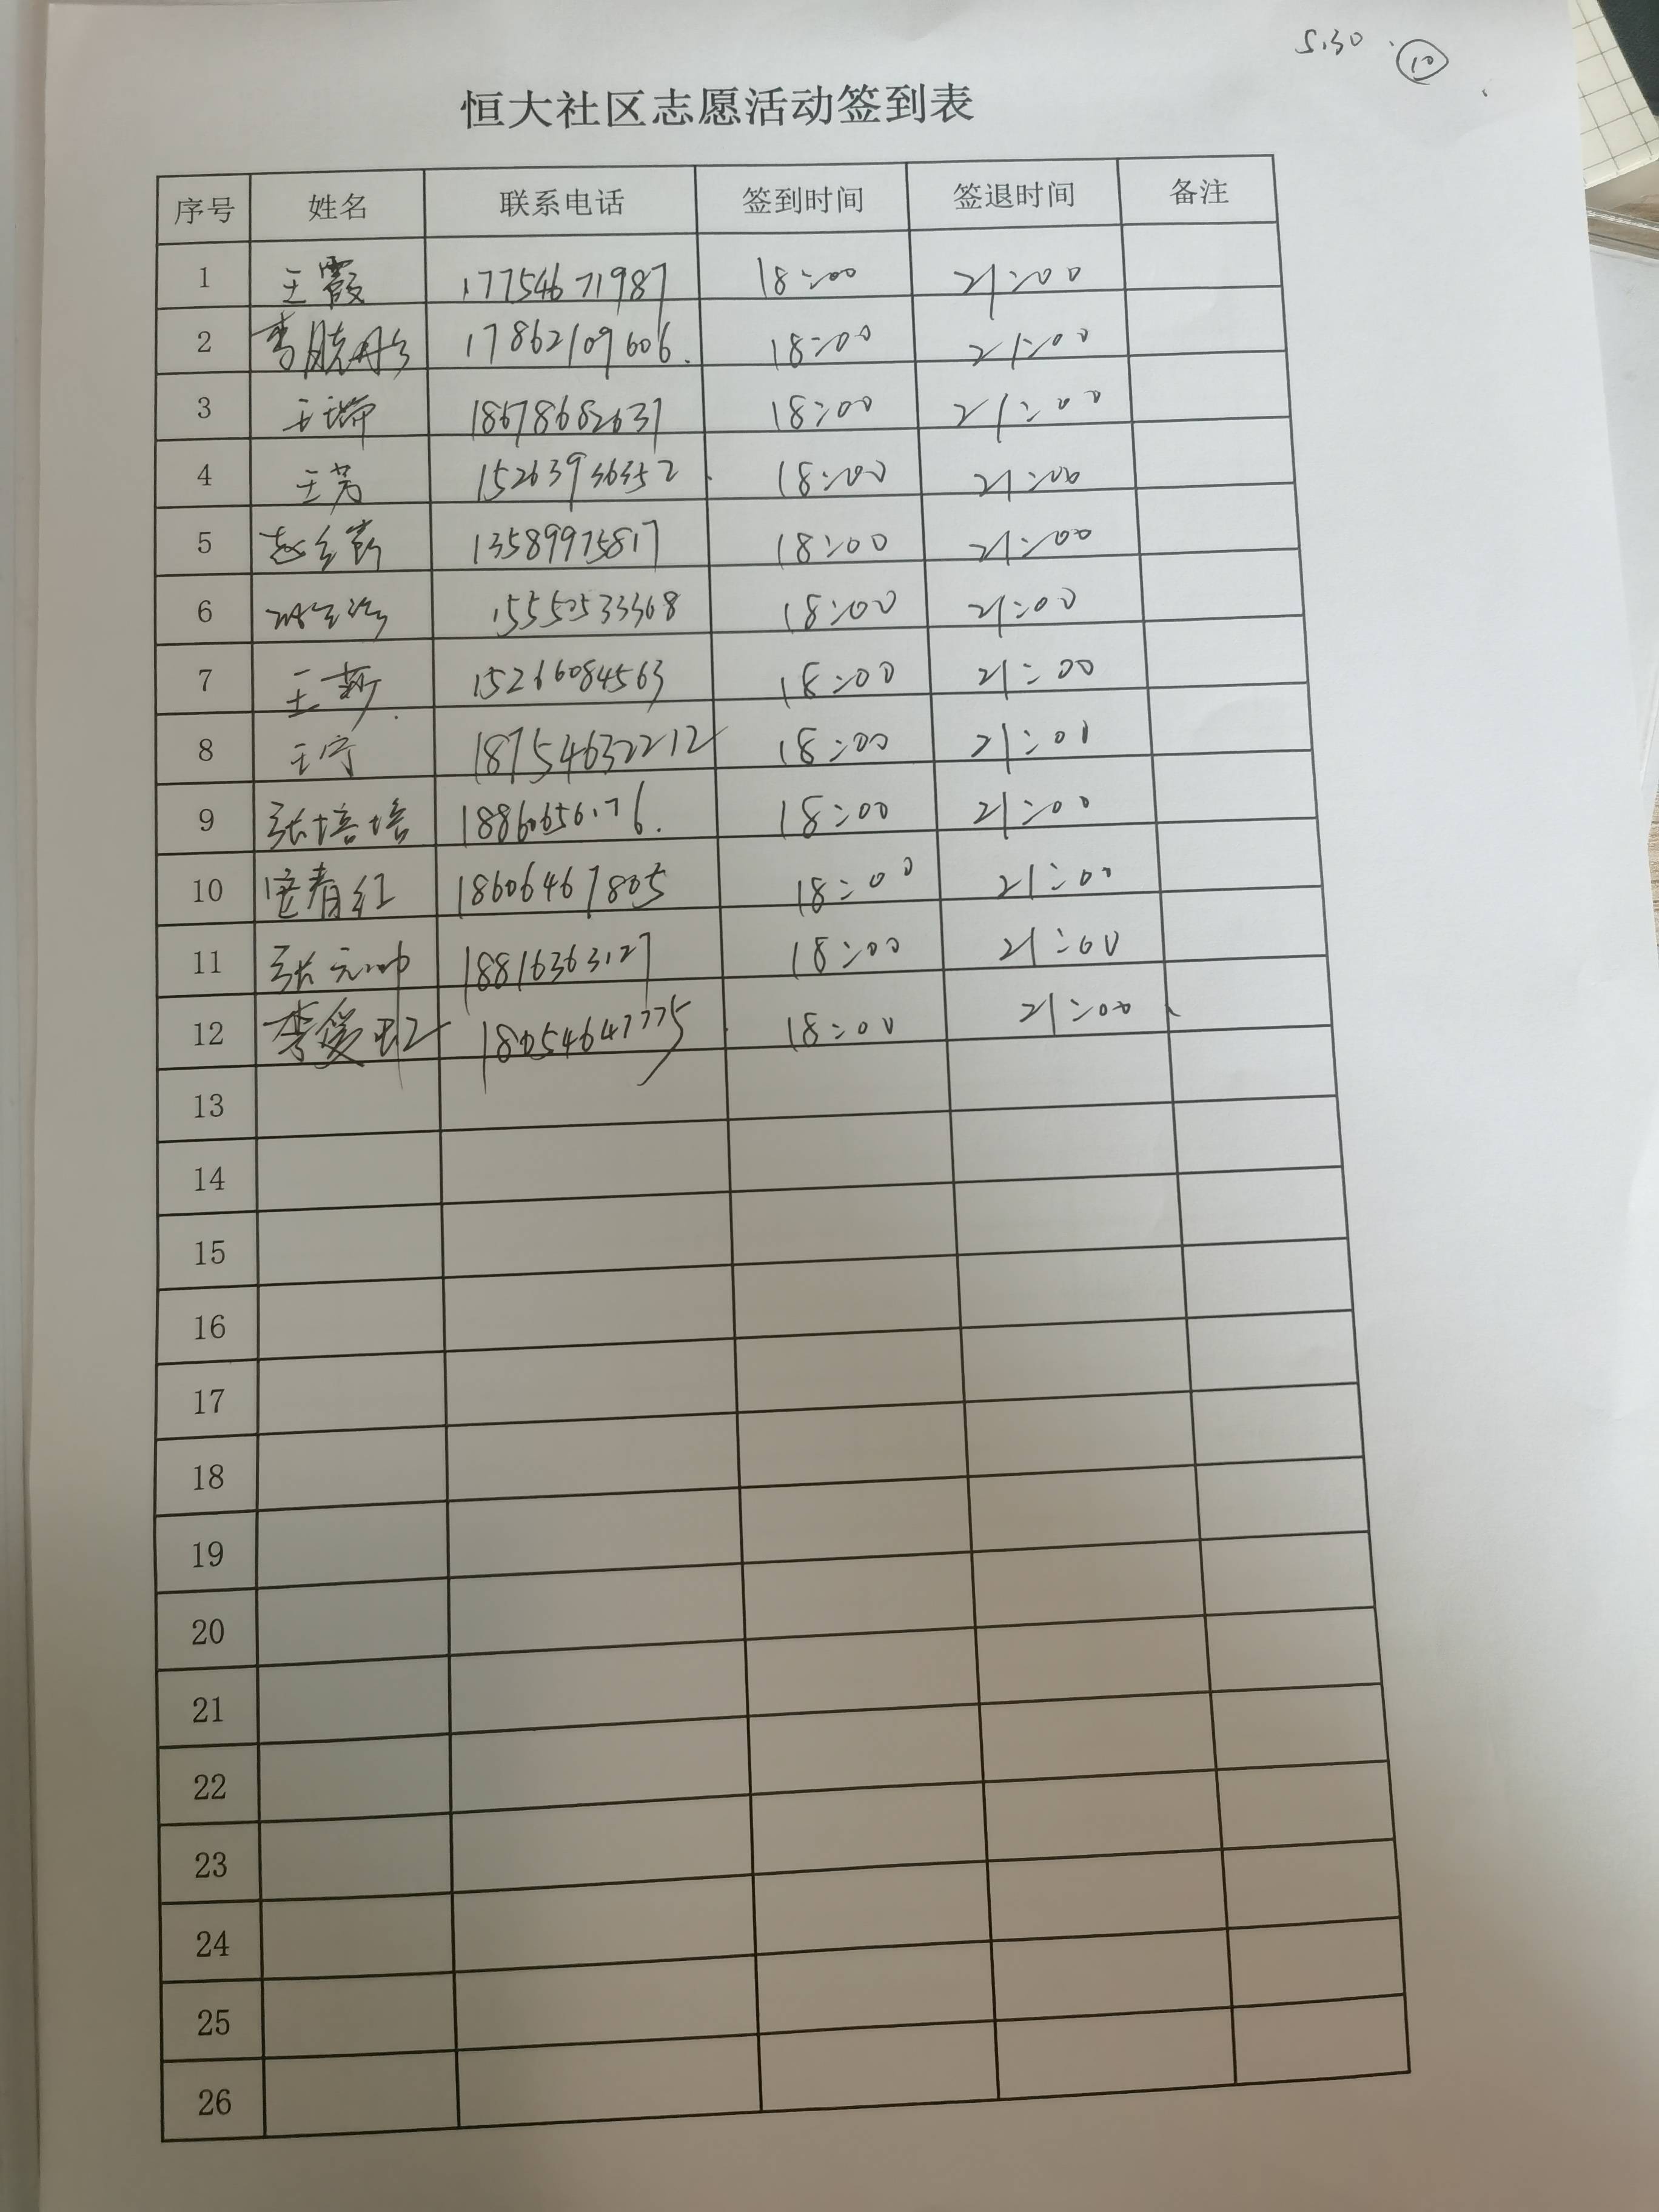 5.30 ⑩
恒大社区志愿活动签到表
序号 姓名 联系电话 签到时间 签退时间 备注
1 王霞 17754671987 18:00 21:00
2 李晓彤 17862109606 18:00 21:00
3 王瑞 18678682637 18:00 21:00
4 王芳 15263936352 18:00 21:00
5 13589975817 18:00 21:00
6 15552533368 18:00 21:00
7 王新 15266084563 18:00 21:00
8 王宁 18754632212 18:00 21:01
9 张培培 18:00 21:00
10 18606467805 18:00 21:00
11 张元帅 18816363127 18:00 21:00
12 李爱 18054647775 18:00 21:00
13
14
15
16
17
18
19
20
21
22
23
24
25
26